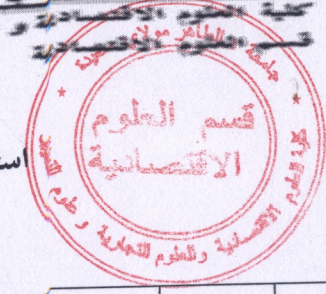 كلية العلوم الاقتصادية و
قسم العلوم الاقتصادية
جامعة الطاهر مولاي
قسم العلوم
الاقتصادية
كلية العلوم الاقتصادية والعلوم التجارية وعلوم التسيير
است